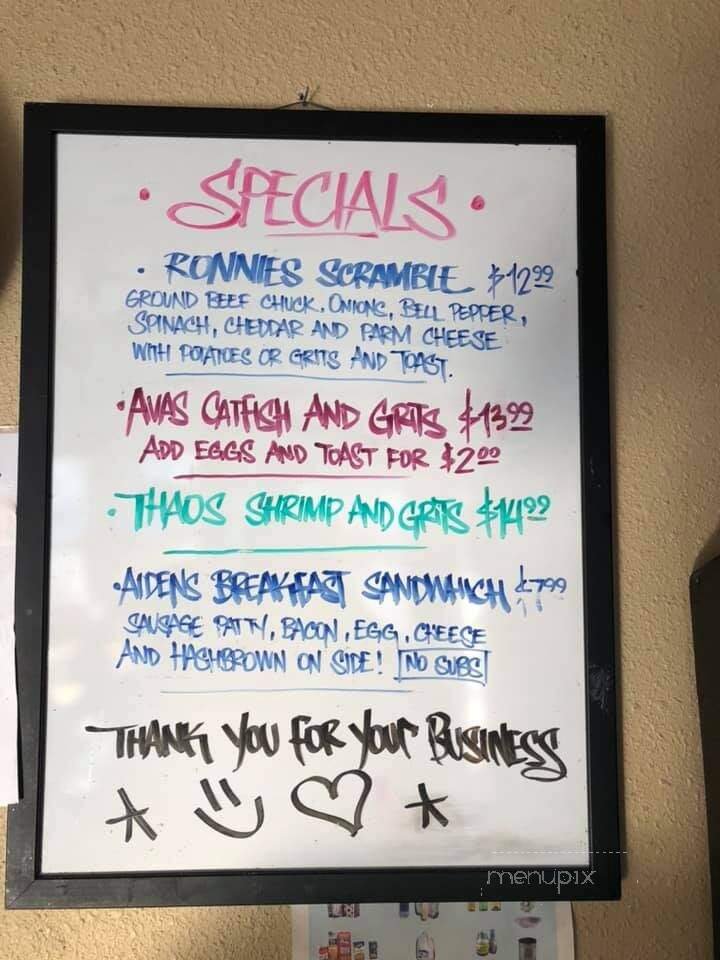 • SPECIALS •
• RONNIES SCRAMBLE $12.99
GROUND BEEF CHUCK, ONIONS, BELL PEPPER,
SPINACH, CHEDDAR AND PARM CHEESE
WITH POTATOES OR GRITS AND TOAST.
• AVAS CATFISH AND GRITS $13.99
ADD EGGS AND TOAST FOR $2.00
• THAOS SHRIMP AND GRITS $14.99
• AIDENS BREAKFAST SANDWHICH $7.99
SAUSAGE PATTY, BACON, EGG, CHEESE
AND HASHBROWN ON SIDE! NO SUBS
THANK YOU FOR YOUR BUSINESS
menupix